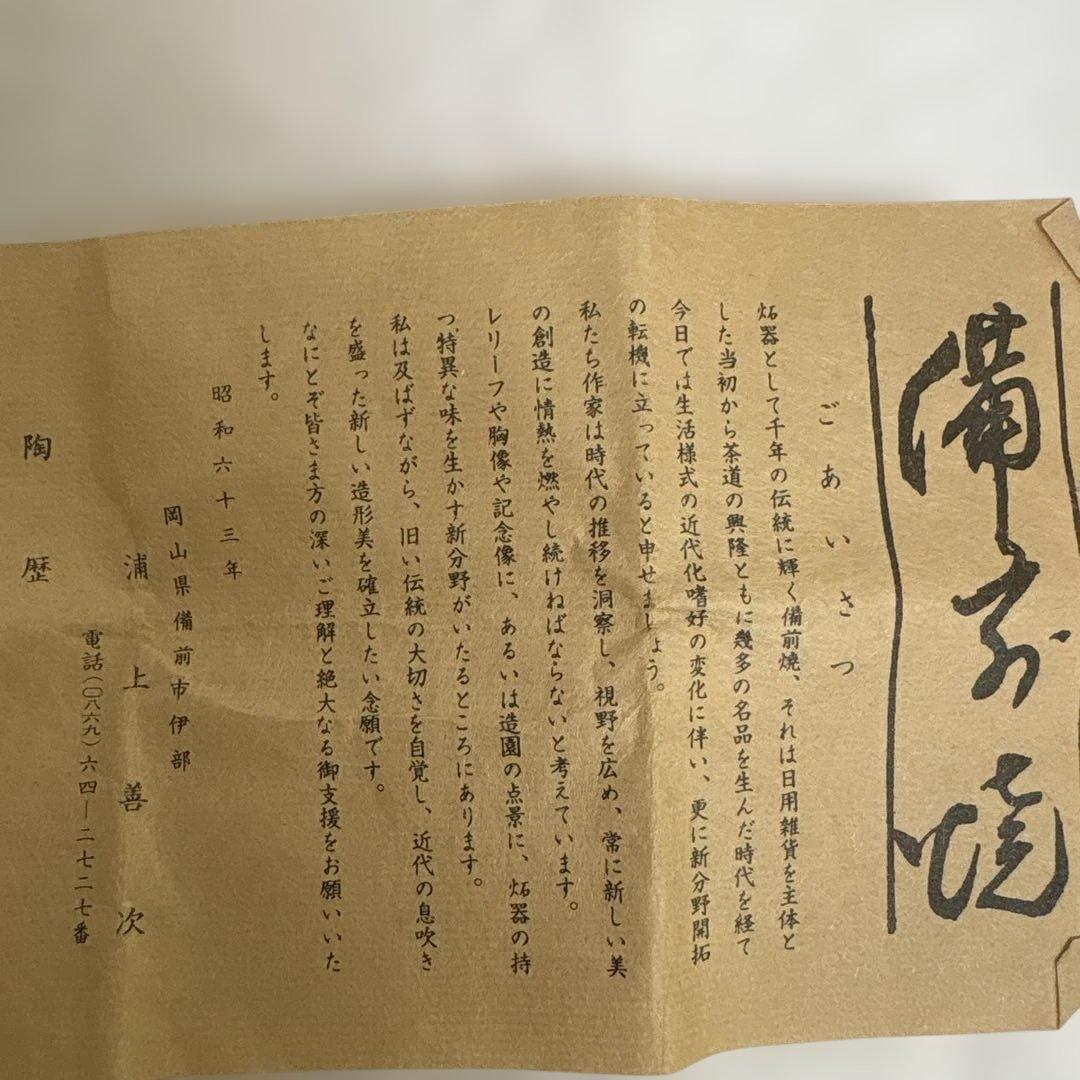 備前焼
ごあいさつ
炻器として千年の伝統に輝く備前焼、それは日用雑貨を主体と
した当初から茶道の興隆ともに幾多の名品を生んだ時代を経て
今日では生活様式の近代化嗜好の変化に伴い、更に新分野開拓
の転機に立っていると申せましょう。
私たち作家は時代の推移を洞察し、視野を広め、常に新しい美
の創造に情熱を燃やし続けねばならないと考えています。
レリーフや胸像や記念像に、あるいは造園の点景に、炻器の持
つ特異な味を生かす新分野がいたるところにあります。
私は及ばずながら、旧い伝統の大切さを自覚し、近代の息吹き
を盛った新しい造形美を確立したい念願です。
なにとぞ皆さま方の深いご理解と絶大なる御支援をお願いいた
します。
昭和六十三年
岡山県備前市伊部
浦上善次
電話(〇八六九)六四―二七二七番
陶歴